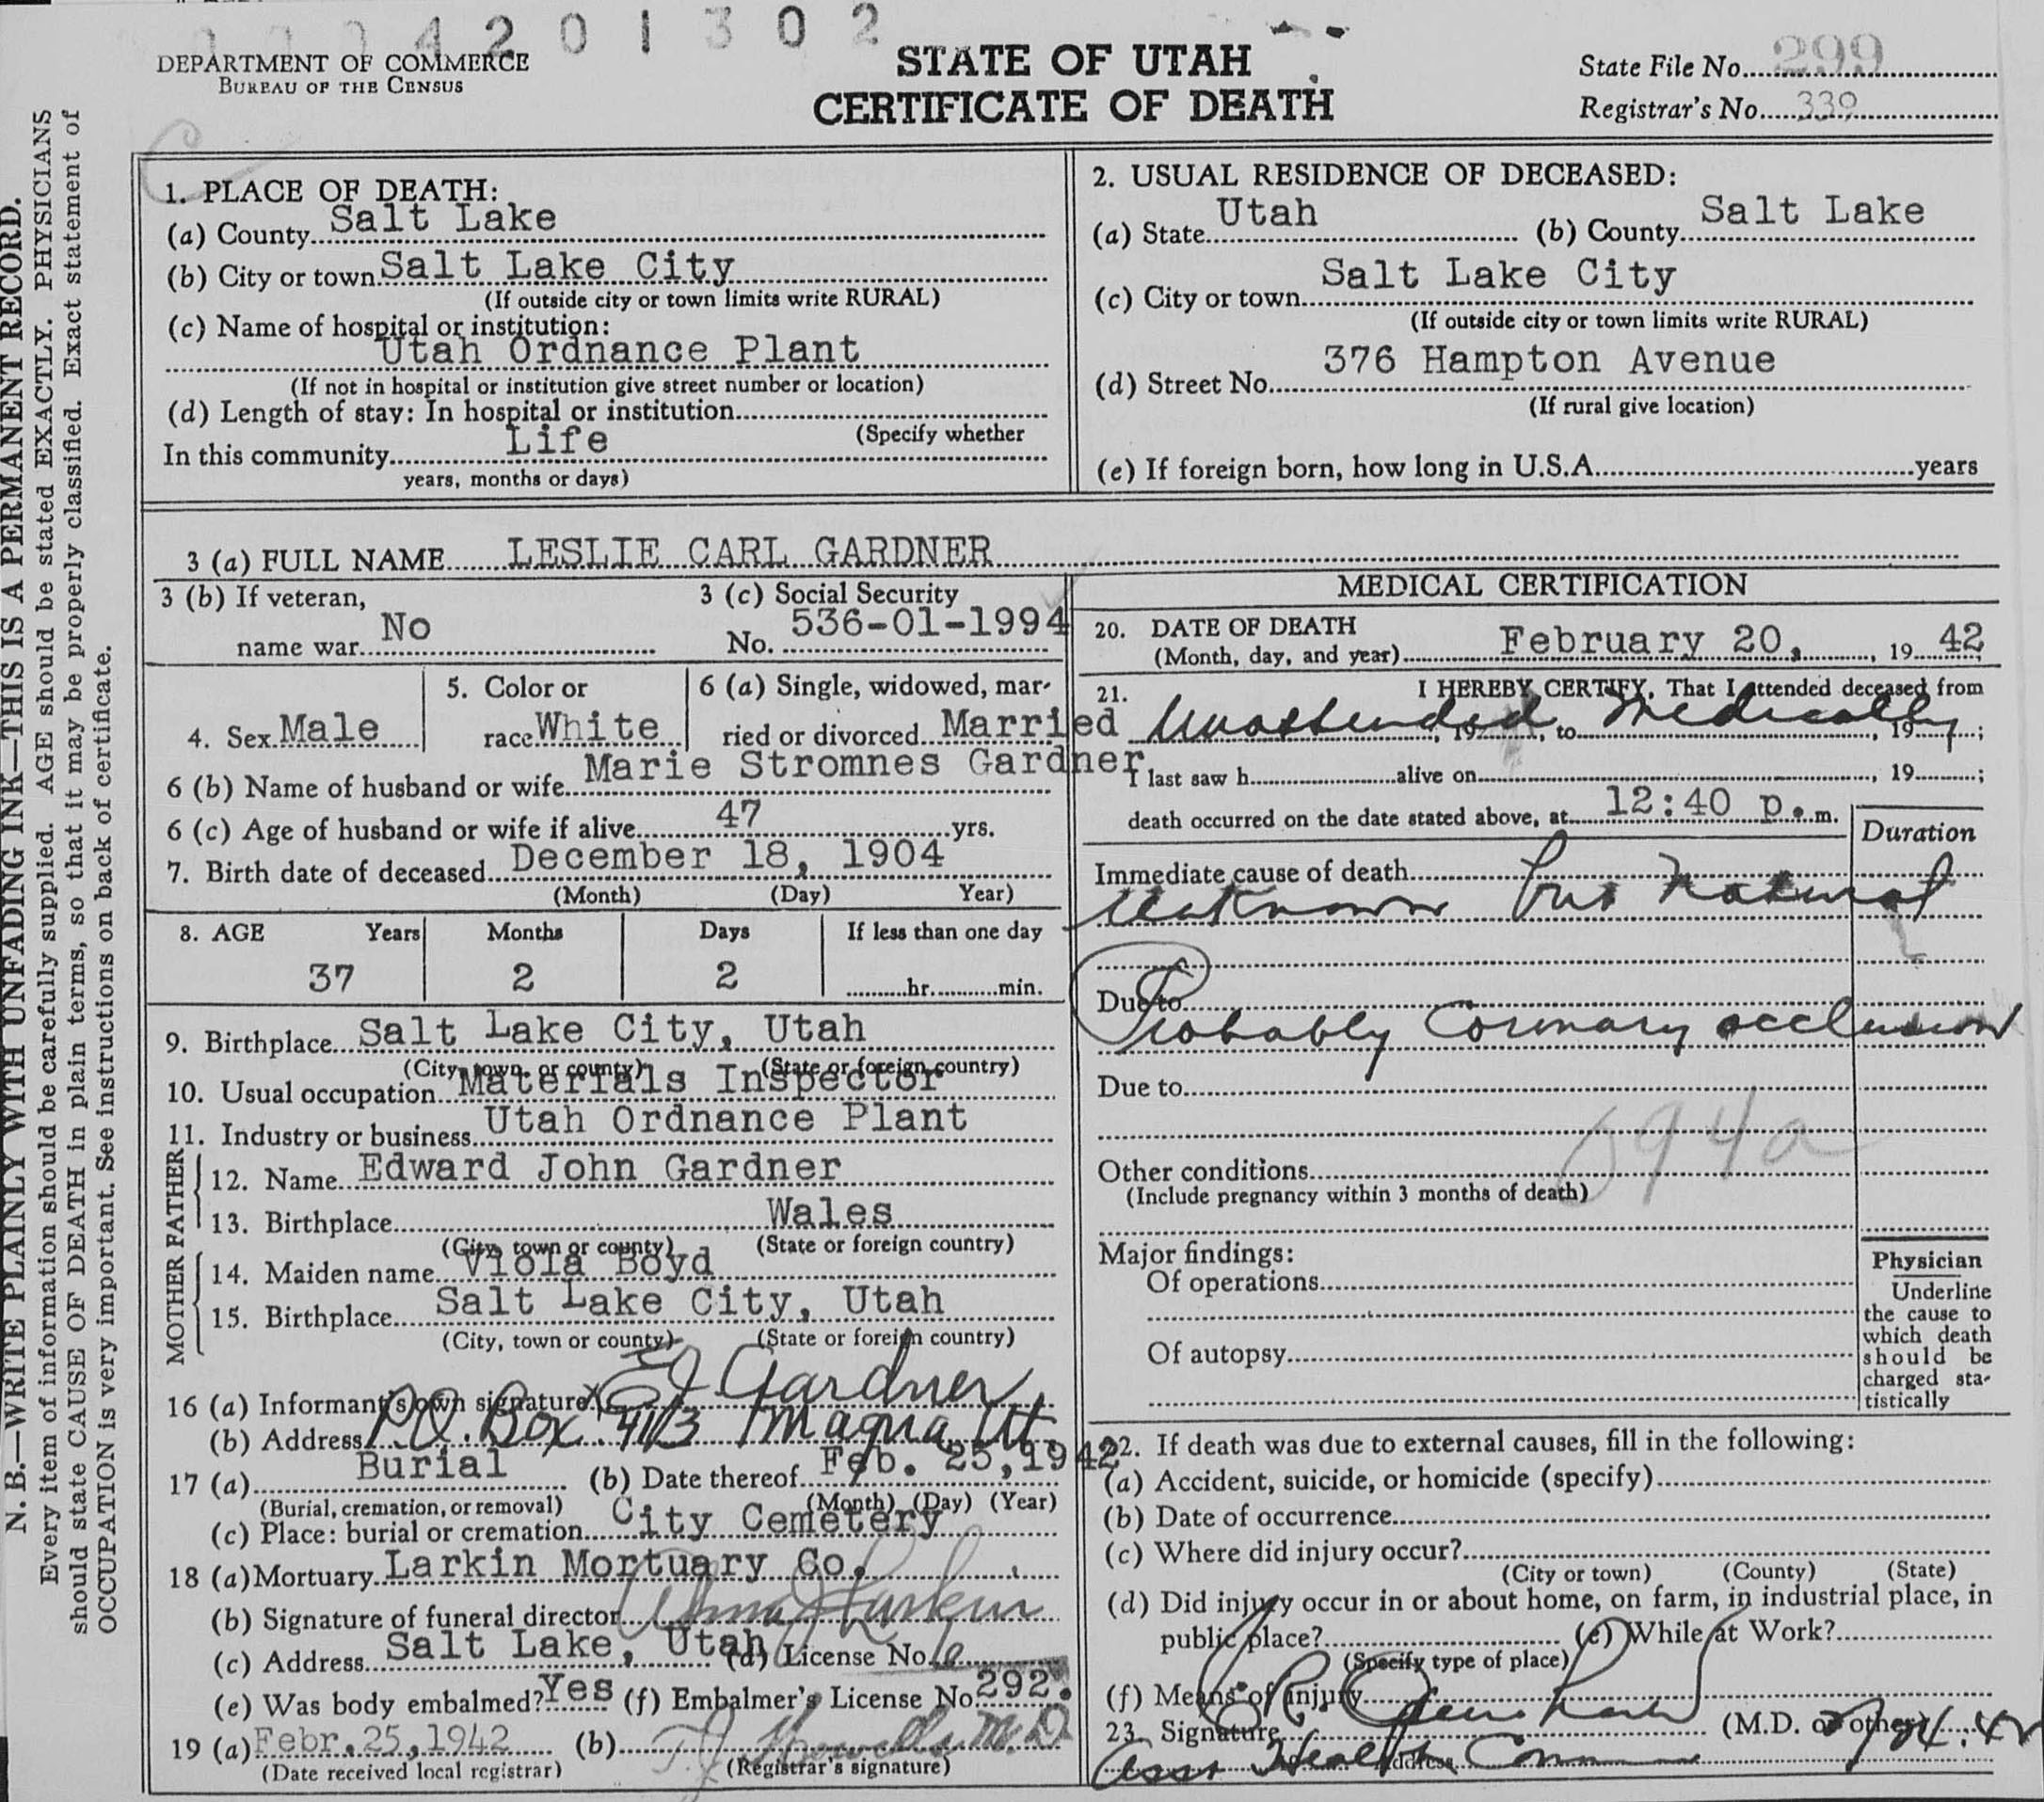 4 2 0 1 3 0 2
DEPARTMENT OF COMMERCE
BUREAU OF THE CENSUS
STATE OF UTAH
CERTIFICATE OF DEATH
State File No. 299
Registrar's No. 339
N. B.—WRITE PLAINLY WITH UNFADING INK—THIS IS A PERMANENT RECORD.
Every item of information should be carefully supplied. AGE should be stated EXACTLY. PHYSICIANS
should state CAUSE OF DEATH in plain terms, so that it may be properly classified. Exact statement of
OCCUPATION is very important. See instructions on back of certificate.
1. PLACE OF DEATH:
(a) County Salt Lake
(b) City or town Salt Lake City
(If outside city or town limits write RURAL)
(c) Name of hospital or institution:
Utah Ordnance Plant
(If not in hospital or institution give street number or location)
(d) Length of stay: In hospital or institution
(Specify whether
In this community Life
years, months or days)
2. USUAL RESIDENCE OF DECEASED:
(a) State Utah (b) County Salt Lake
(c) City or town Salt Lake City
(If outside city or town limits write RURAL)
(d) Street No. 376 Hampton Avenue
(If rural give location)
(e) If foreign born, how long in U.S.A. years
3 (a) FULL NAME LESLIE CARL GARDNER
3 (b) If veteran,
name war No
3 (c) Social Security
No. 536-01-1994
4. Sex Male
5. Color or
race White
6 (a) Single, widowed, mar-
ried or divorced Married
6 (b) Name of husband or wife Marie Stromnes Gardner
6 (c) Age of husband or wife if alive 47 yrs.
7. Birth date of deceased December 18, 1904
(Month) (Day) Year)
8. AGE Years Months Days If less than one day
37 2 2 hr. min.
9. Birthplace Salt Lake City, Utah
(City, town, or county) (State or foreign country)
10. Usual occupation Materials Inspector
11. Industry or business Utah Ordnance Plant
FATHER
12. Name Edward John Gardner
13. Birthplace Wales
(City, town or county) (State or foreign country)
MOTHER
14. Maiden name Viola Boyd
15. Birthplace Salt Lake City, Utah
(City, town or county) (State or foreign country)
16 (a) Informant's own signature X E J Gardner
(b) Address P.O. Box 413 Magna Ut.
17 (a) Burial (b) Date thereof Feb. 25, 1942
(Burial, cremation, or removal) (Month) (Day) (Year)
(c) Place: burial or cremation City Cemetery
18 (a) Mortuary Larkin Mortuary Co.
(b) Signature of funeral director Larkin
(c) Address Salt Lake, Utah (d) License No. 6
(e) Was body embalmed? Yes (f) Embalmer's License No. 292.
19 (a) Febr. 25, 1942 (b) T J Howells M.D.
(Date received local registrar) (Registrar's signature)
MEDICAL CERTIFICATION
20. DATE OF DEATH
(Month, day, and year) February 20, 19 42
21. I HEREBY CERTIFY, That I attended deceased from
Unattended Medically, 19 , to , 19 ;
I last saw h alive on , 19 ;
death occurred on the date stated above, at 12:40 p.m.
Duration
Immediate cause of death
Unknown but natural
Due to
Probably Coronary occlusion
Due to
94a
Other conditions
(Include pregnancy within 3 months of death)
Major findings:
Of operations
Of autopsy
Physician
Underline
the cause to
which death
should be
charged sta-
tistically
22. If death was due to external causes, fill in the following:
(a) Accident, suicide, or homicide (specify)
(b) Date of occurrence
(c) Where did injury occur?
(City or town) (County) (State)
(d) Did injury occur in or about home, on farm, in industrial place, in
public place? (e) While at Work?
(Specify type of place)
(f) Means of injury
23. Signature (M.D. or other)
Asst Health Comm Address